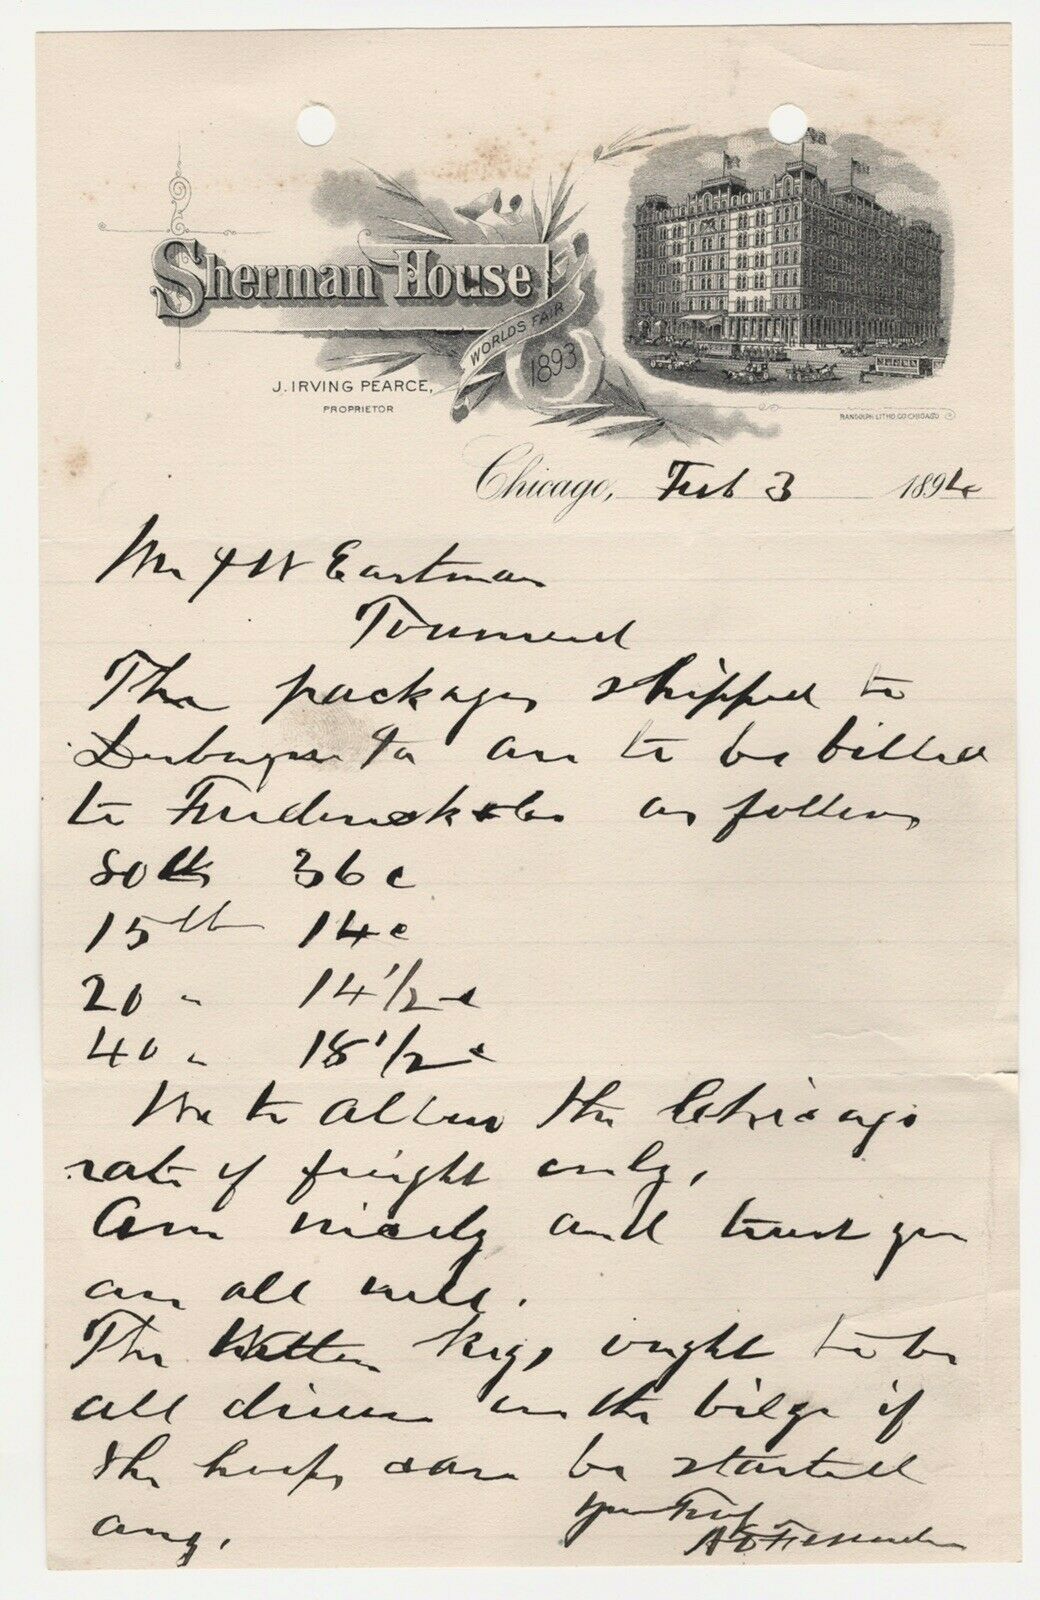 Sherman House
WORLDS FAIR
1893
J. IRVING PEARCE,
PROPRIETOR
RANDOLPH LITHO. CO CHICAGO
Chicago, Feb 3 1892
Mr F W Eastman
Townsend
The packages shipped to
Dubuque Ia are to be billed
to Frederick & Co as follows
80 lbs 36c
15 lb 14c
20 " 14 1/2 c
40 " 18 1/2 c
We to allow the Chicago
rate of freight only,
Am nicely and trust you
are all well.
The kegs ought to be
all driven on the bilge if
the hoops can be started
any.
Yours Truly
A D